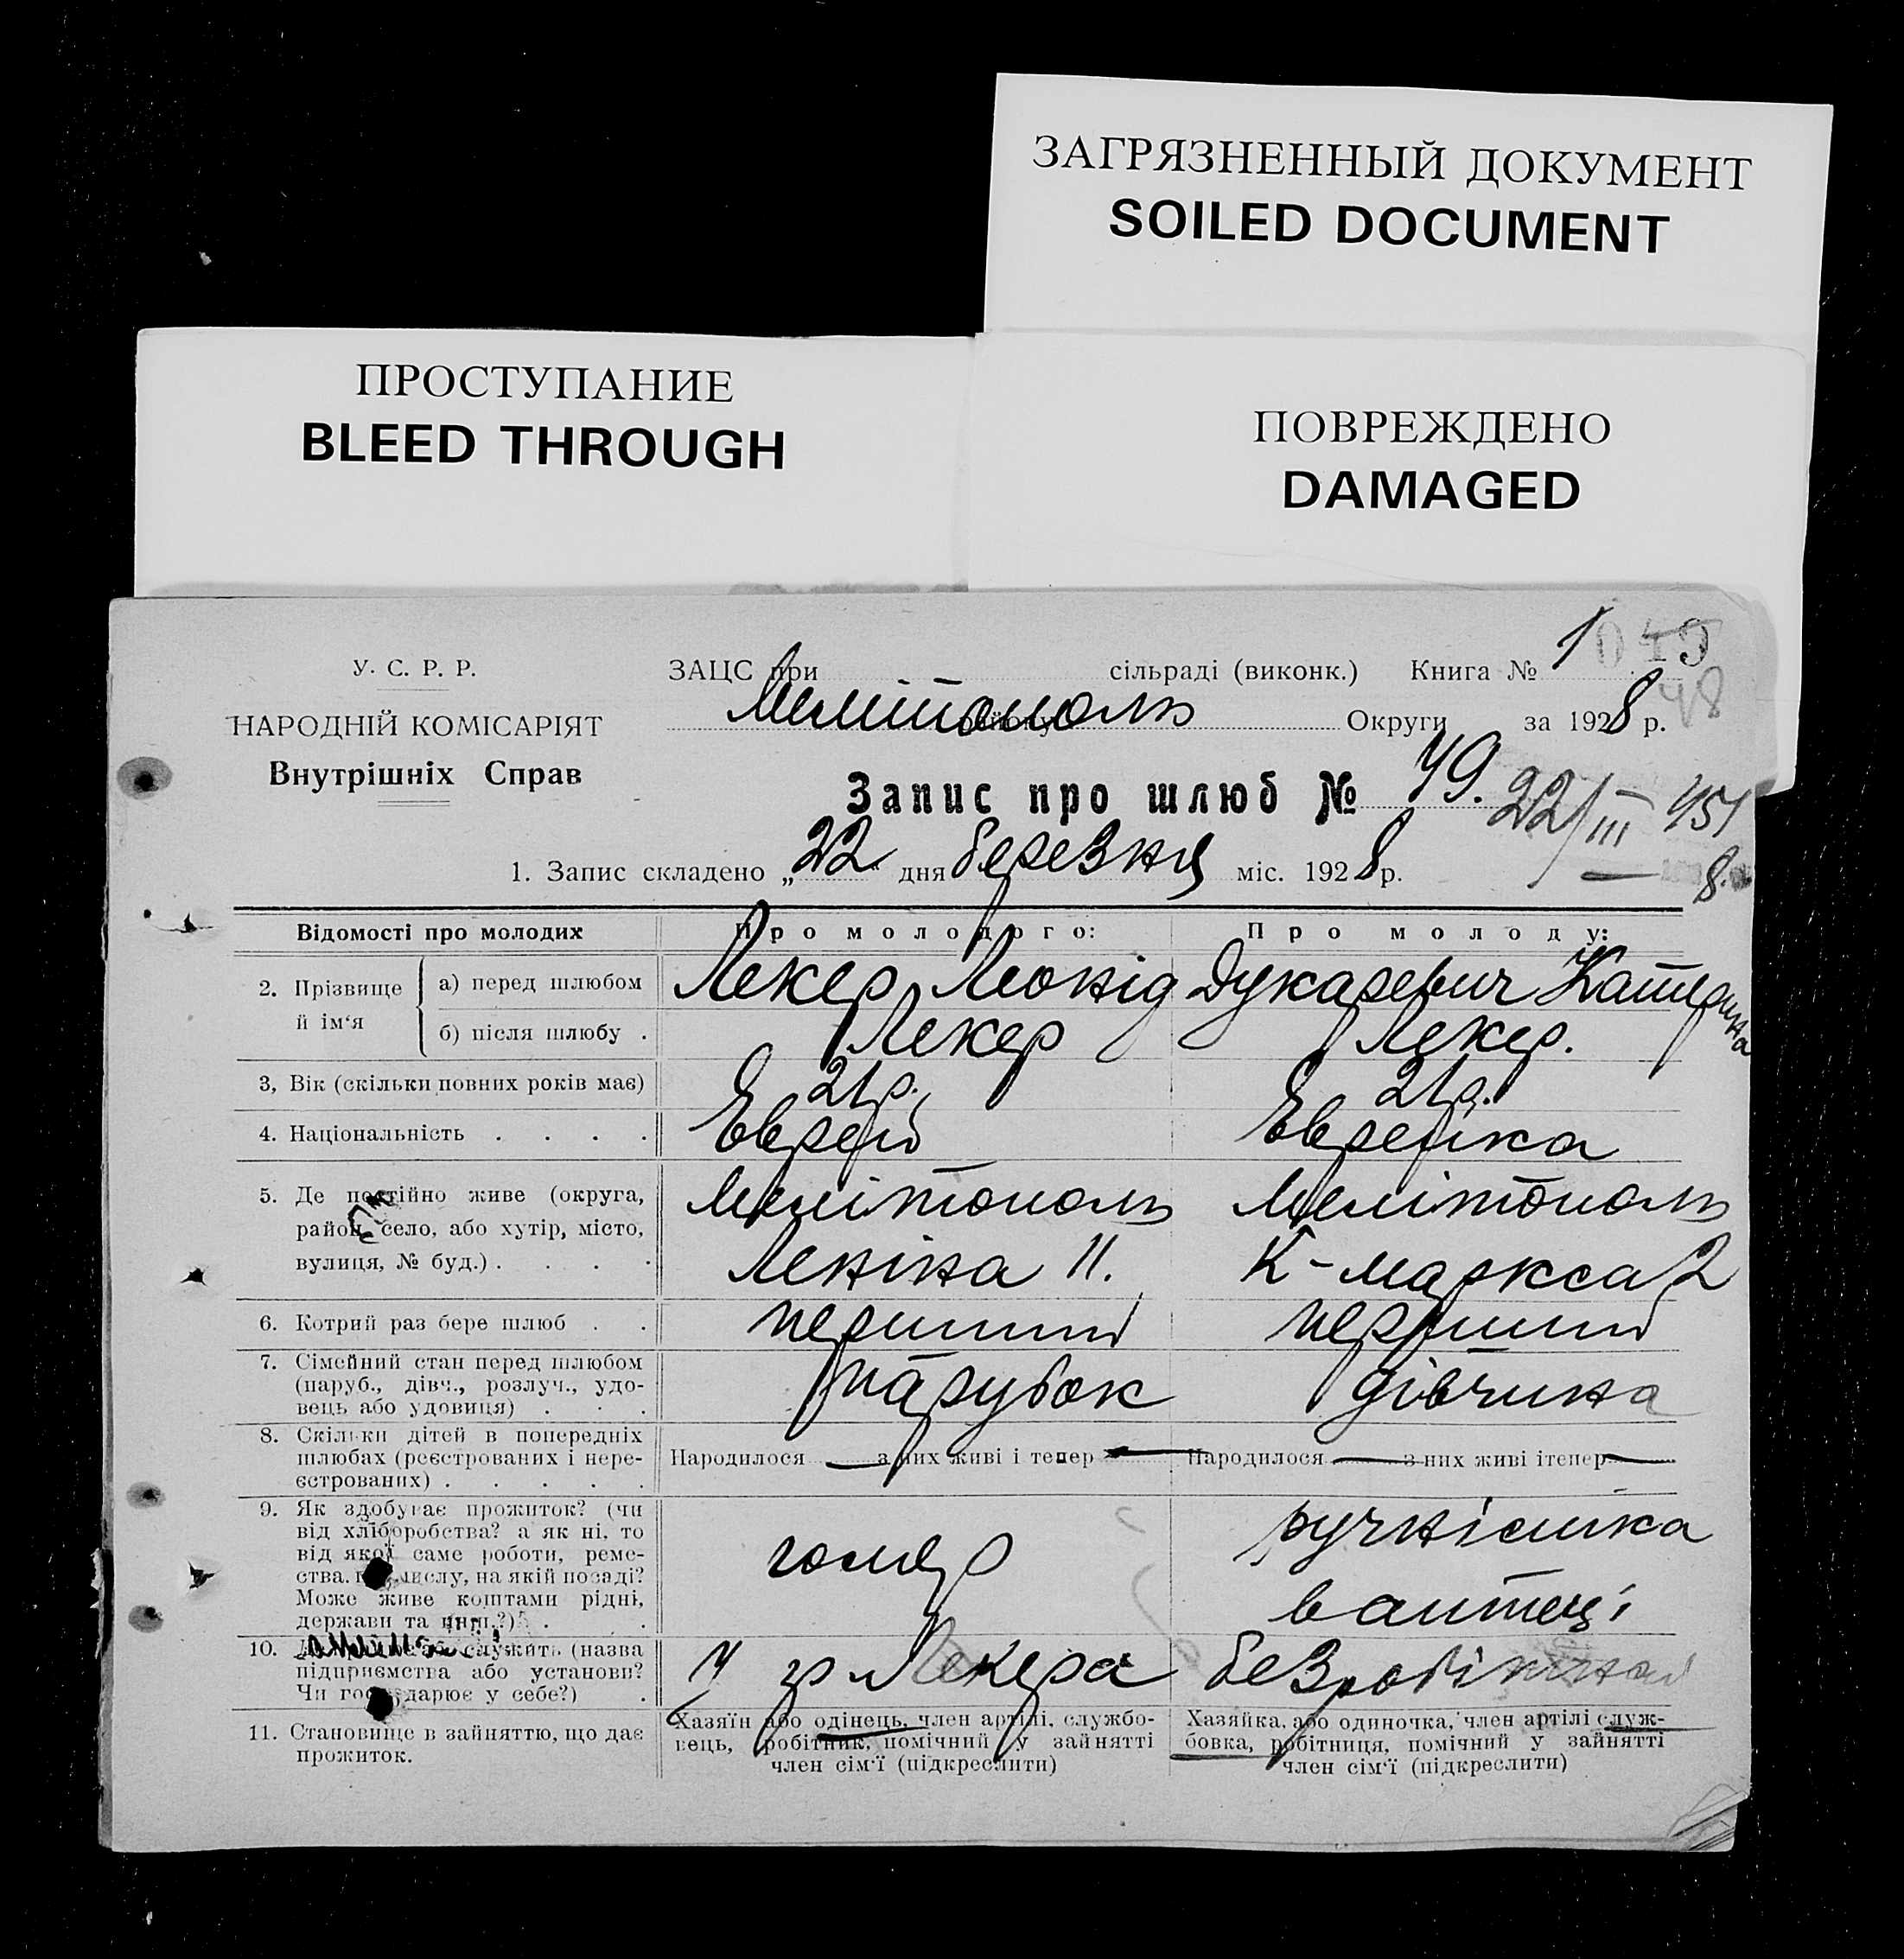 ЗАГРЯЗНЕННЫЙ ДОКУМЕНТ
SOILED DOCUMENT
ПРОСТУПАНИЕ
BLEED THROUGH
ПОВРЕЖДЕНО
DAMAGED
У. С. Р. Р.
НАРОДНІЙ КОМІСАРІЯТ
Внутрішніх Справ
ЗАЦС при сільраді (виконк.) Книга № 1
Мелітополь району Округи за 1928 р.
48
Запис про шлюб № 79.
22/III 451
8.
1. Запис складено „22" дня березня міс. 1928 р.
Відомості про молодих
Про молодого:
Про молоду:
2. Прізвище й ім'я
а) перед шлюбом
Лекер Леонід
Дукаревич Катерина
б) після шлюбу .
Лекер
Лекер.
3, Вік (скільки повних років має)
21 р.
21 р.
4. Національність . . . .
Еврей
Еврейка
5. Де постійно живе (округа,
район, село, або хутір, місто,
вулиця, № буд.) . . . .
Мелітополь
Леніна 11.
Мелітополь
К-Маркса 2
6. Котрий раз бере шлюб . .
перший
перший
7. Сімейний стан перед шлюбом
(паруб., дівч., розлуч., удо-
вець або удовиця) . . .
парубок
дівчина
8. Скільки дітей в попередніх
шлюбах (реєстрованих і нере-
єстрованих) . . . . .
Народилося — з них живі і тепер —
Народилося — з них живі ітепер —
9. Як здобуває прожиток? (чи
від хліборобства? а як ні, то
від якої саме роботи, реме-
ства, промислу, на якій посаді?
Може живе коштами рідні,
держави та инш.?) . .
голяр
ручнісшка
в аптеці
10. служить (назва
підприємства або установи?
Чи господарює у себе?) .
У гр Лекера
безробітн
11. Становище в зайняттю, що дає
прожиток.
Хазяїн або одінець, член артілі, службо-
вець, робітник, помічний у зайнятті
член сім'ї (підкреслити)
Хазяйка, або одиночка, член артілі служ-
бовка, робітниця, помічний у зайнятті
член сім'ї (підкреслити)